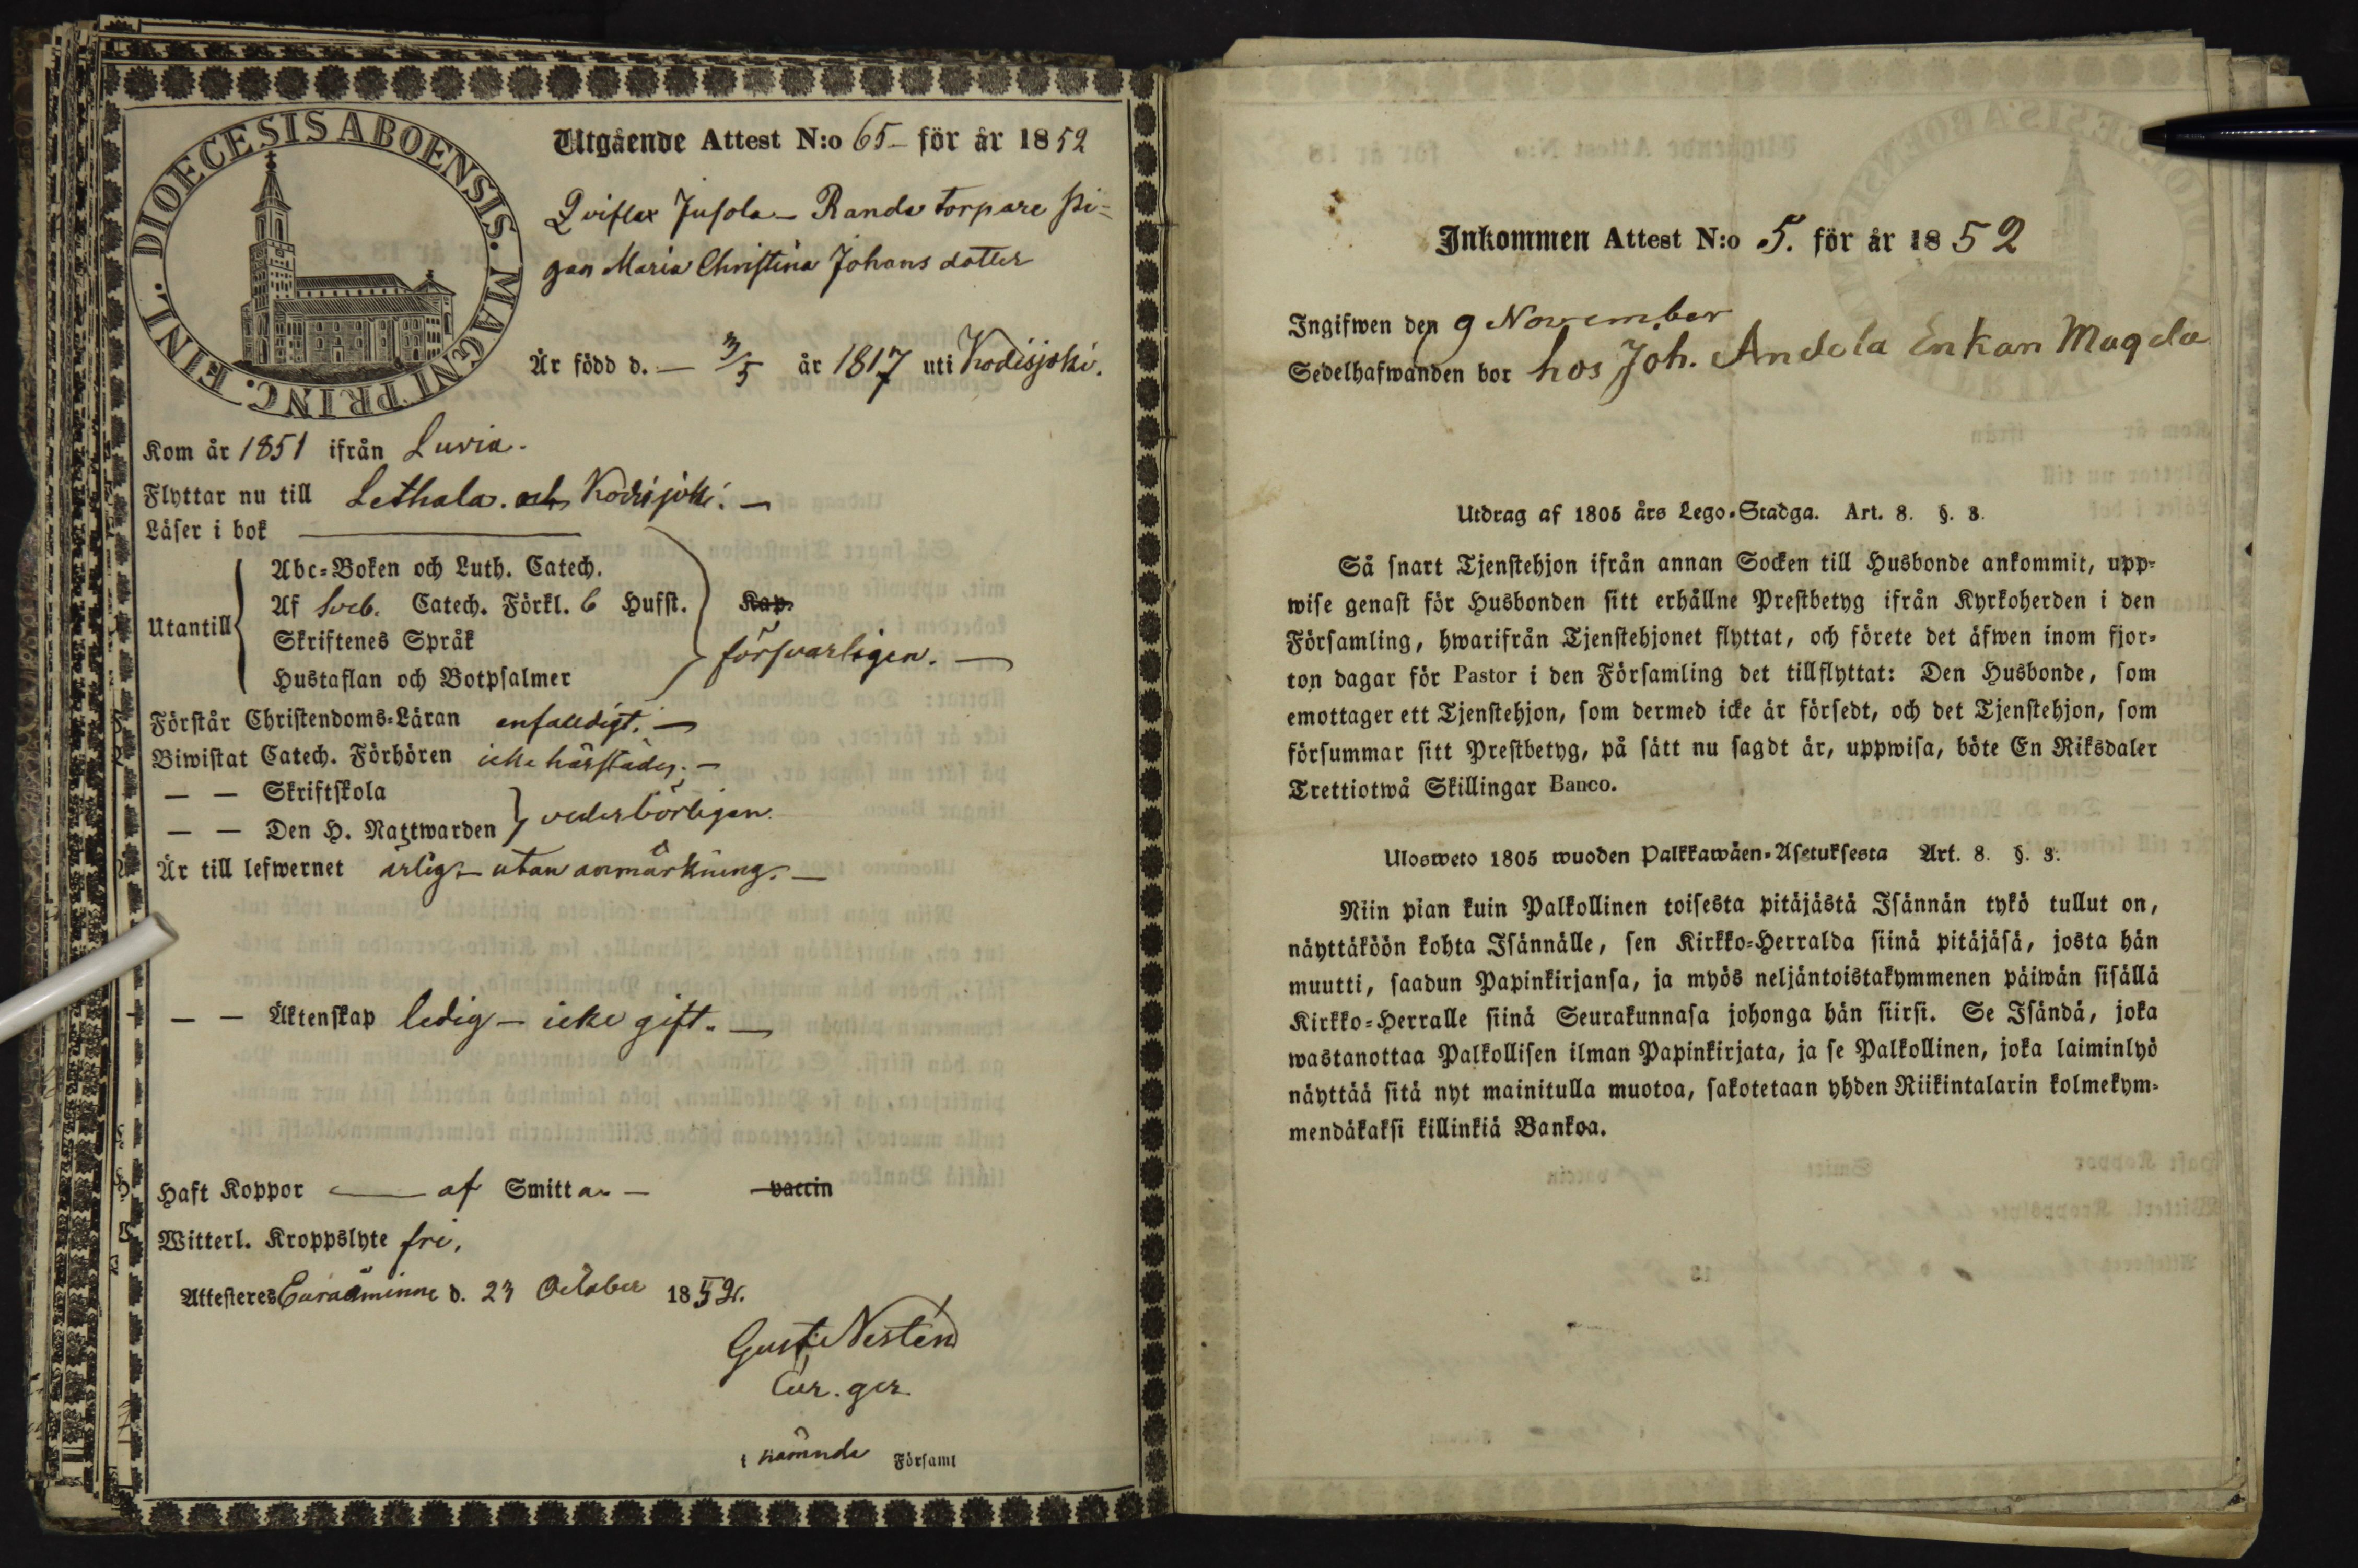 DIOECESIS ABOENSIS. MAGNI PRINC. FINL.
Utgående Attest N:o 65 – för år 1852
Qviflax Jusola – Randa torpare pi-
gan Maria Christina Johans dotter
Är född d. — 3/5 år 1817 uti Kodisjoki.
Kom år 1851 ifrån Luvia.
Flyttar nu till Lethala. och Kodisjoki. —
Läser i bok ————
Abc-Boken och Luth. Catech.
Utantill
Af Sveb. Catech. Förkl. 6 Hufst. Kap.
Skriftenes Språk
försvarligen. —
Hustaflan och Botpsalmer
Förstår Christendoms-Läran enfaldigt. —
Biwistat Catech. Förhören icke härstädes. —
— — Skriftskola
— — Den H. Nattwarden vederbörligen.
Är till lefwernet ärlig – utan anmärkning. —
— — Äktenskap ledig – icke gift. —
Haft Koppor — af Smittan — vaccin
Witterl. Kroppslyte fri.
Attesteras Euraåminne d. 23 October 1852.
Gust. Nestén
Cur. ger.
i nämnde Församl
Inkommen Attest N:o 5. för år 1852
Ingifwen den 9 November
Sedelhafwanden bor hos Joh. Andola Enkan Magda
Utdrag af 1805 års Lego-Stadga. Art. 8. §. 3.
Så snart Tjenstehjon ifrån annan Socken till Husbonde ankommit, upp-
wise genast för Husbonden sitt erhållne Prestbetyg ifrån Kyrkoherden i den
Församling, hwarifrån Tjenstehjonet flyttat, och förete det äfwen inom fjor-
ton dagar för Pastor i den Församling det tillflyttat: Den Husbonde, som
emottager ett Tjenstehjon, som dermed icke är försedt, och det Tjenstehjon, som
försummar sitt Prestbetyg, på sätt nu sagdt är, uppwisa, böte En Riksdaler
Trettiotwå Skillingar Banco.
Ulosweto 1805 wuoden Palkkawäen-Asetuksesta Art. 8. §. 3.
Niin pian kuin Palkollinen toisesta pitäjästä Isännän tykö tullut on,
näyttäköön kohta Isännälle, sen Kirkko-Herralda siinä pitäjäsä, josta hän
muutti, saadun Papinkirjansa, ja myös neljäntoistakymmenen päiwän sisällä
Kirkko-Herralle siinä Seurakunnasa johonga hän siirsi. Se Isändä, joka
wastanottaa Palkollisen ilman Papinkirjata, ja se Palkollinen, joka laiminlyö
näyttää sitä nyt mainitulla muotoa, sakotetaan yhden Riikintalarin kolmekym-
mendäkaksi killinkiä Bankoa.